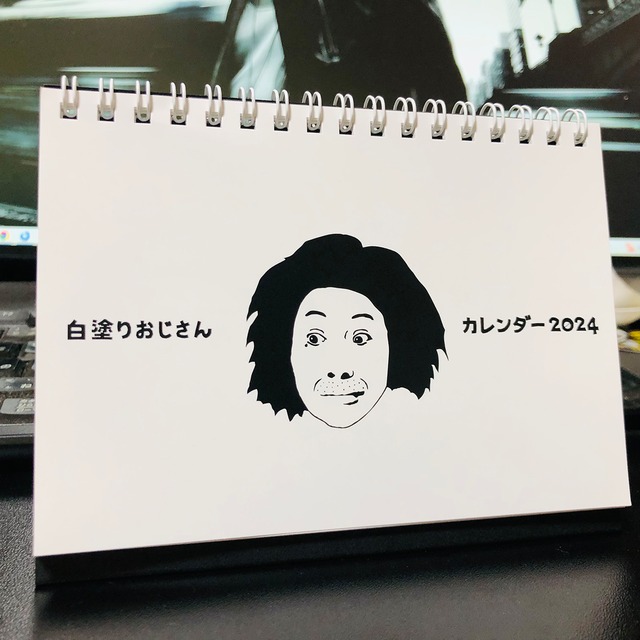 白塗りおじさん
カレンダー2024